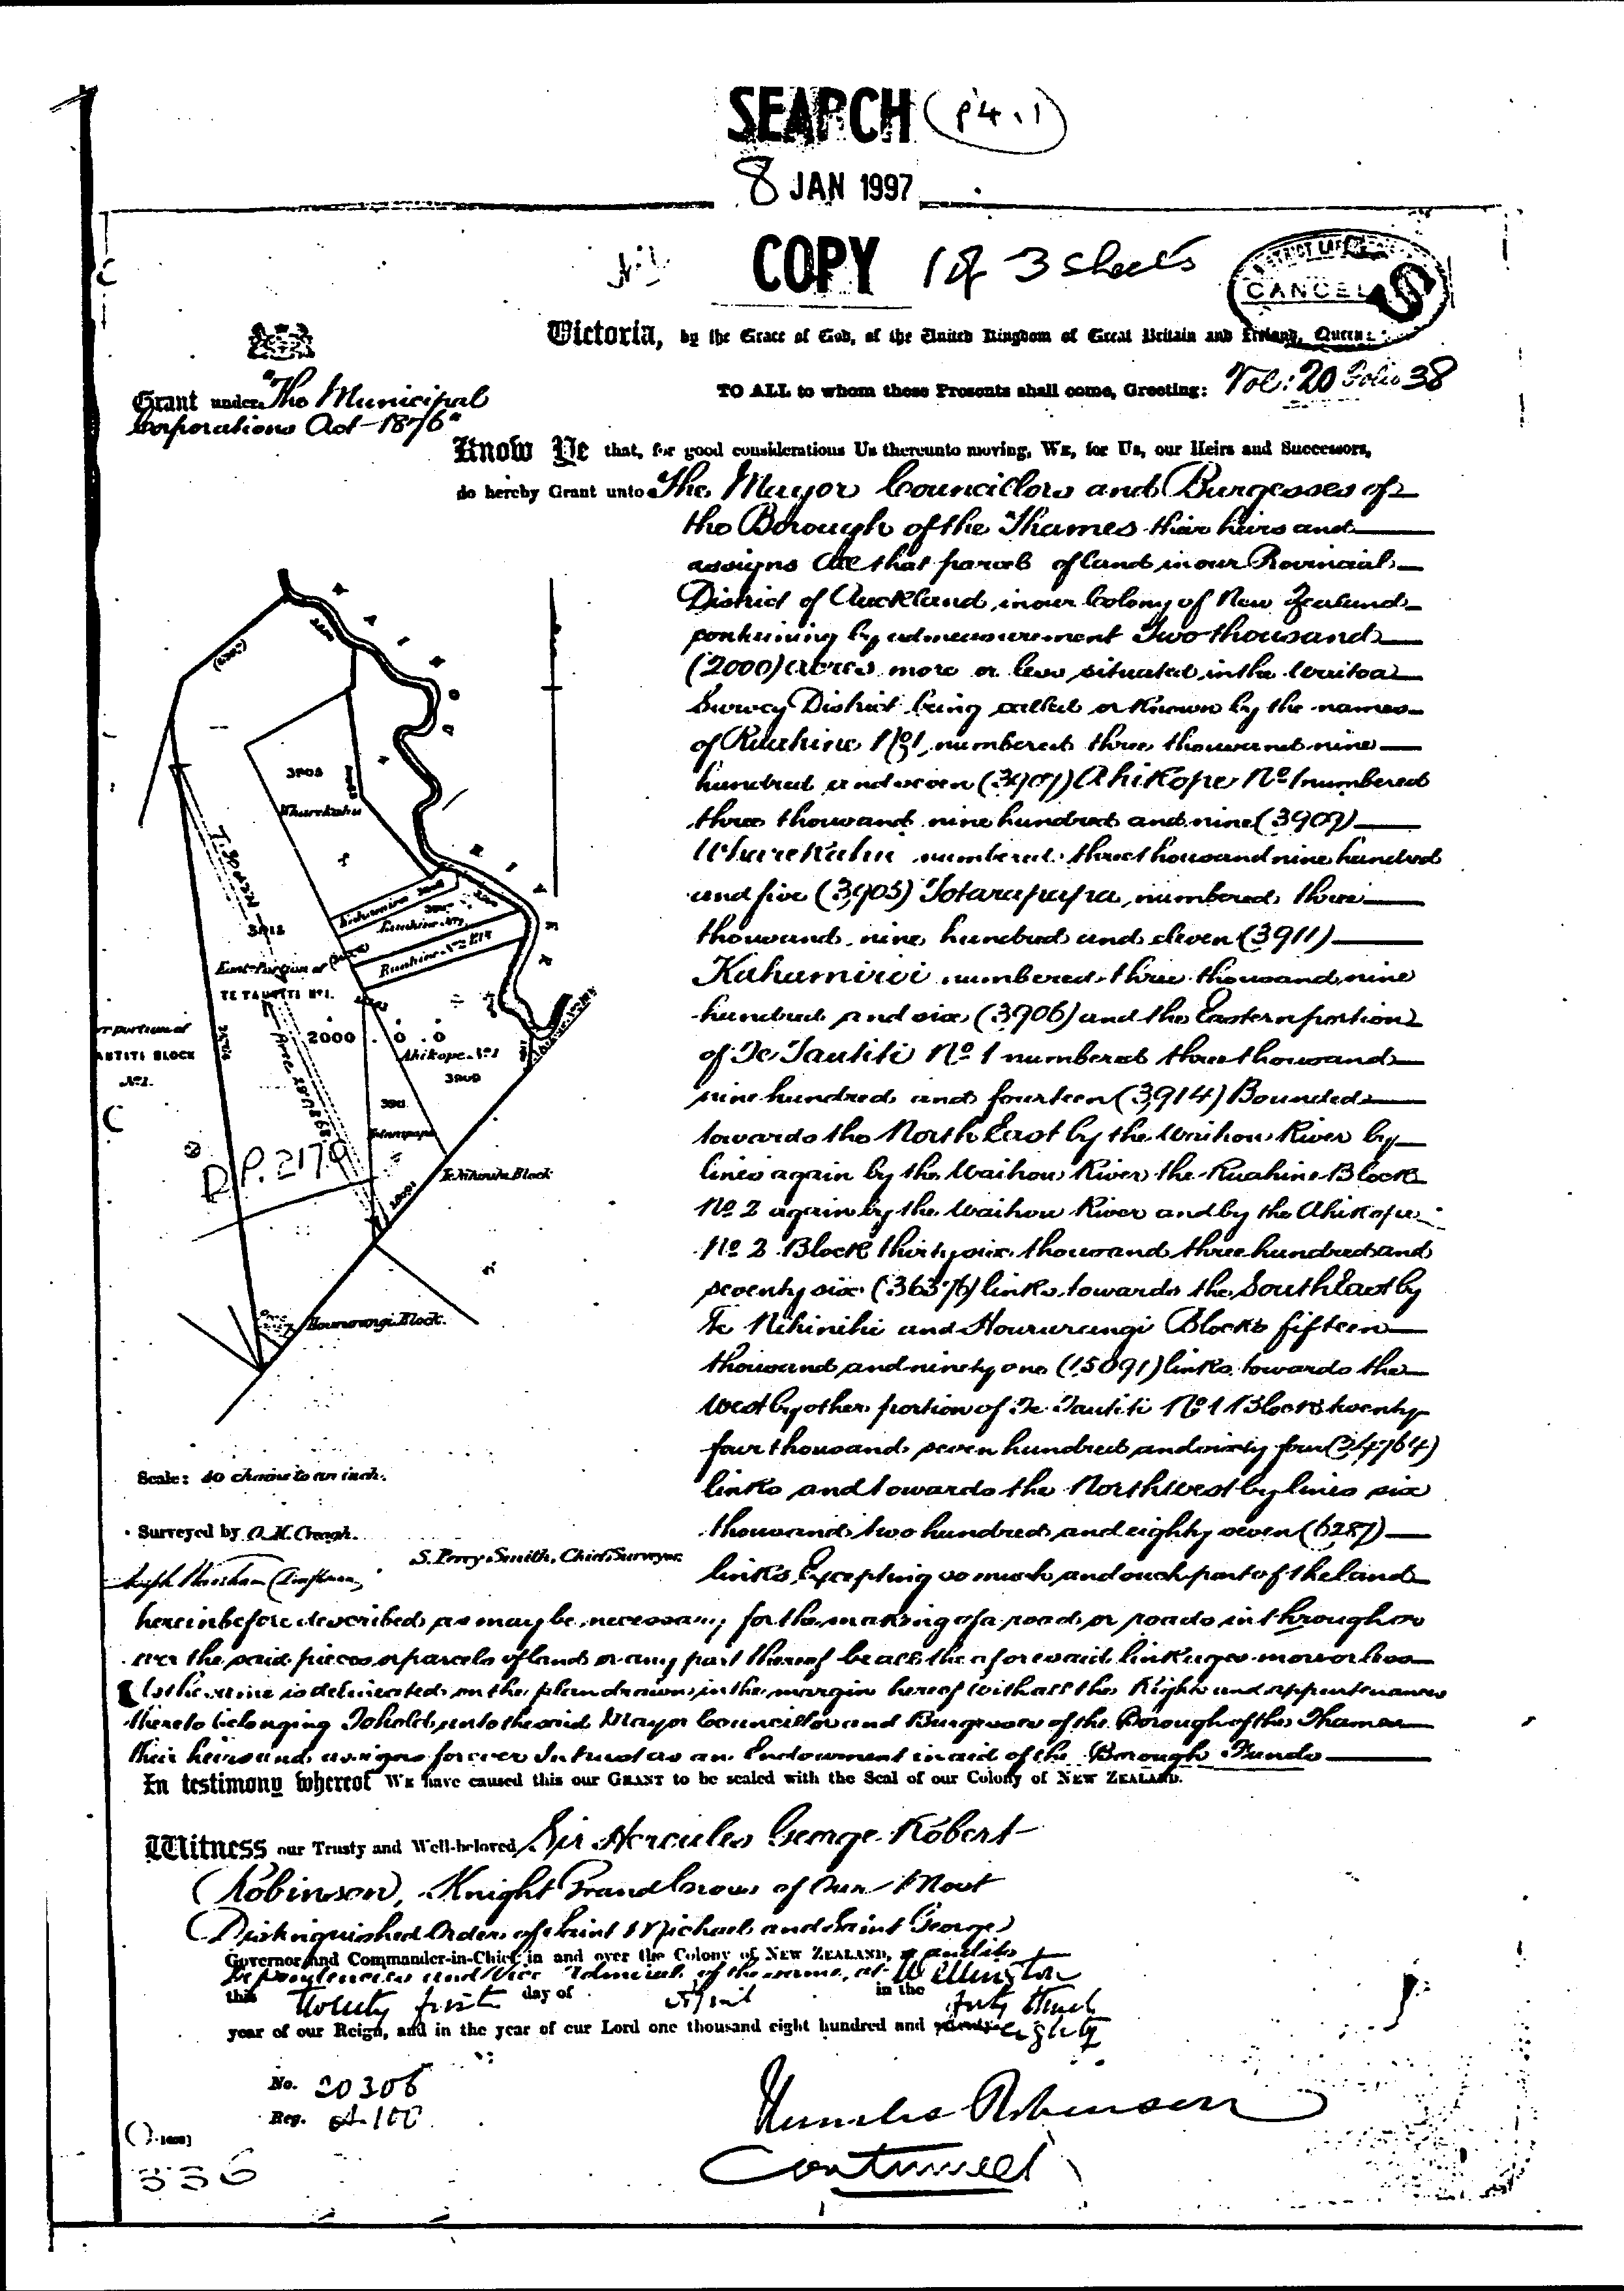 SEARCH (P4.1)
8 JAN 1997
COPY 1 of 3 sheets
DISTRICT
CANCEL
Victoria, by the Grace of God, of the United Kingdom of Great Britain and Ireland, Queen:
TO ALL to whom these Presents shall come, Greeting: Vol: 20 Folio 38
Grant under "The Municipal
Corporations Act 1876"
Know Ye that, for good considerations Us thereunto moving, WE, for Us, our Heirs and Successors,
do hereby Grant unto The Mayor Councillors and Burgesses of
the Borough of the Thames their heirs and
assigns All that parcel of land in our Provincial
District of Auckland in our Colony of New Zealand
containing by admeasurement Two thousand
(2000) acres more or less situated in the Waitoa
Survey District being called or Known by the names
of Ruahine No 1 numbered three thousand nine
hundred and seven (3907) Ahikope No 1 numbered
three thousand nine hundred and nine (3909)
Wharekahu numbered three thousand nine hundred
and five (3905) Totarapapa numbered three
thousand nine hundred and eleven (3911)
Kahumiriri numbered three thousand nine
hundred and six (3906) and the Eastern portion
of Te Tautiti No 1 numbered three thousand
nine hundred and fourteen (3914) Bounded
towards the North East by the Waihou River by
lines again by the Waihou River the Ruahine Block
No 2 again by the Waihou River and by the Ahikope
No 2 Block thirty six thousand three hundred and
seventy six (36376) links towards the South East by
Te Nihinihi and Hoururangi Blocks fifteen
thousand and ninety one (15091) links towards the
West by other portion of Te Tautiti No 1 Block twenty
four thousand seven hundred and sixty four (24764)
links and towards the North West by lines six
thousand two hundred and eighty seven (6287)
links Excepting so much and such part of the land
hereinbefore described as may be necessary for the making of a road or roads in through or
over the said pieces or parcels of land or any part thereof be all the aforesaid linkages more or less
As the same is delineated on the plan drawn in the margin hereof with all the Rights and appurtenances
thereto belonging To hold unto the said Mayor Councillors and Burgesses of the Borough of the Thames
their heirs and assigns forever In trust as an Endowment in aid of the Borough Funds
3905
Wharekahu
Kahumiriri 3906
Ruahine No 1
Ruahine No 2
East Portion of
TE TAUTITI No 1.
2000 . 0 . 0
Ahikope No 1
3909
3911
Totarapapa
portion of
TAUTITI BLOCK
No 1.
D.P. 2179
Te Nihinihi Block
Hoururangi Block.
Scale: 40 chains to an inch.
Surveyed by O. H. Creagh.
S. Percy Smith, Chief Surveyor
In testimony whereof WE have caused this our GRANT to be sealed with the Seal of our Colony of NEW ZEALAND.
Witness our Trusty and Well-beloved Sir Hercules George Robert
Robinson, Knight Grand Cross of Our Most
Distinguished Order of Saint Michael and Saint George
Governor and Commander-in-Chief in and over the Colony of NEW ZEALAND, and its
Dependencies and Vice Admiral of the same, at Wellington
this Twenty first day of April in the forty third
year of our Reign, and in the year of our Lord one thousand eight hundred and eighty
No. 20306
Reg. 100
Hercules Robinson
Continued
336